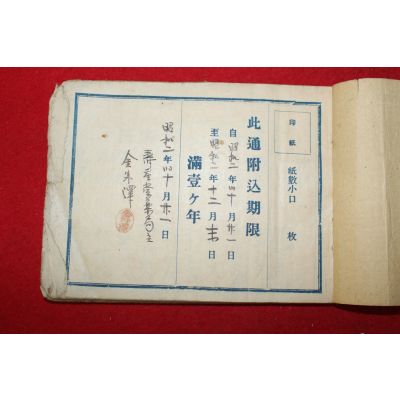 印紙
紙數小口 枚
此通附込期限
自昭和二年四十月廿一日
至昭和二年十二月末日
滿壹ケ年
昭和二年四十月廿一日
壽
金